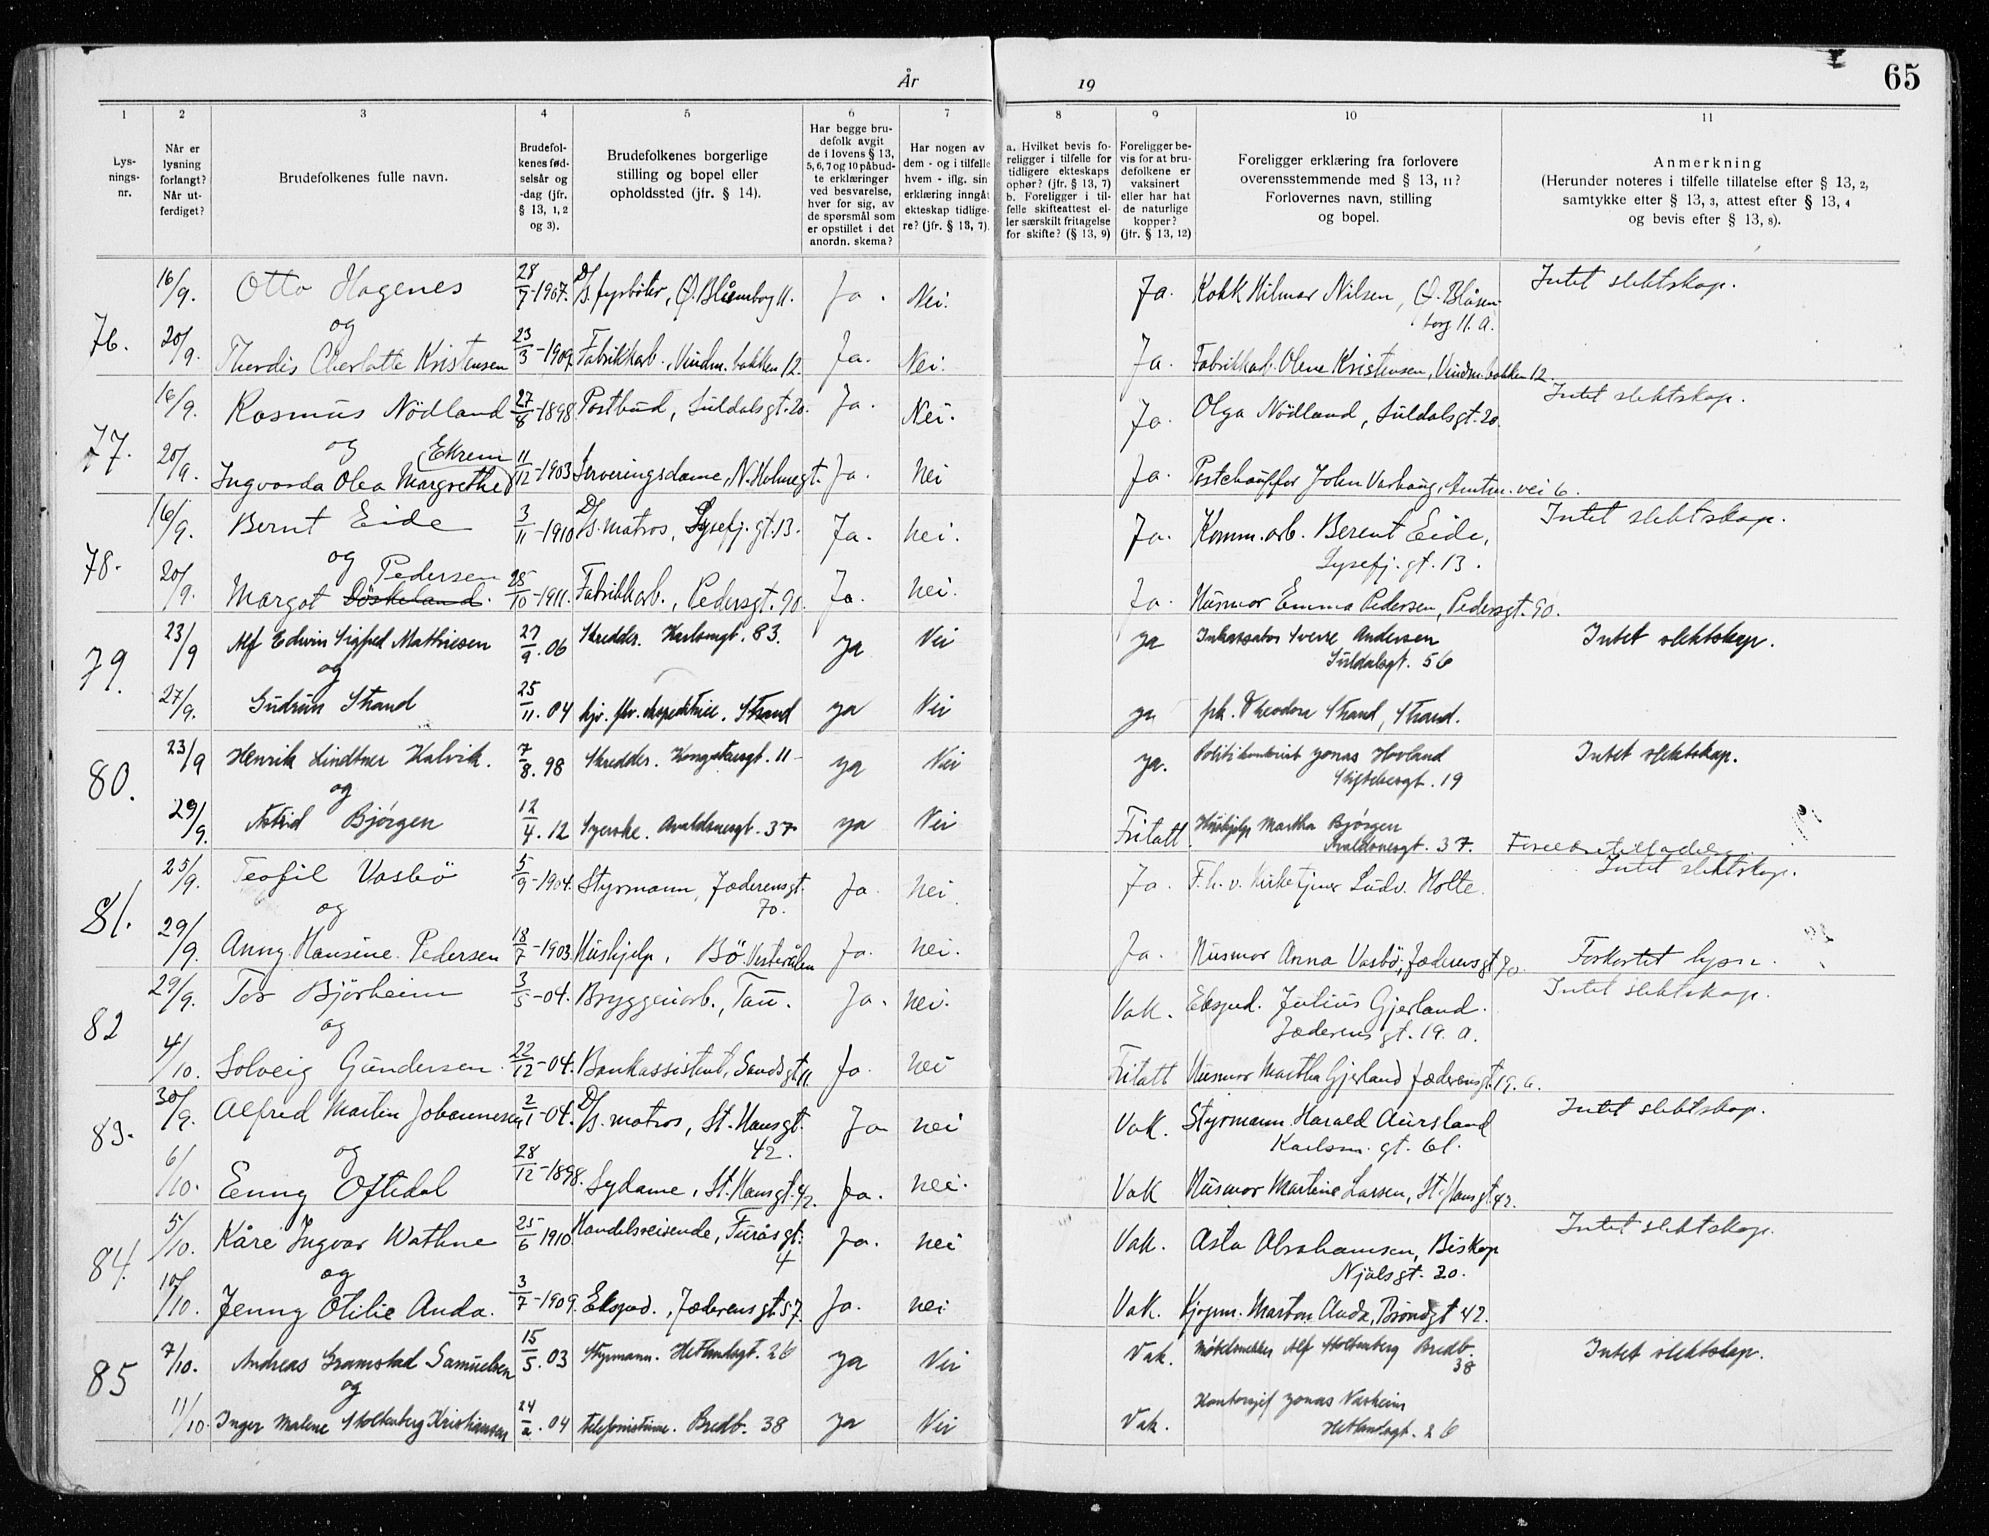 År
19
65
1 2 3 4 5 6 7 8 9 10 11
Lysningsnr.
Når er lysning forlangt? Når utferdiget?
Brudefolkenes fulle navn.
Brudefolkenes fødselsår og -dag (jfr. § 13, 1, 2 og 3).
Brudefolkenes borgerlige stilling og bopel eller opholdssted (jfr. § 14).
Har begge brudefolk avgit de i lovens § 13, 5, 6, 7 og 10 påbudte erklæringer ved besvarelse, hver for sig, av de spørsmål som er opstillet i det anordn. skema?
Har nogen av dem - og i tilfelle hvem - iflg. sin erklæring inngått ekteskap tidligere? (jfr. § 13, 7).
a. Hvilket bevis foreligger i tilfelle for tidligere ekteskaps ophør? (jfr. § 13, 7) b. Foreligger i tilfelle skifteattest eller særskilt fritagelse for skifte? (§ 13, 9)
Foreligger bevis for at brudefolkene er vaksinert eller har hat de naturlige kopper? (jfr. § 13, 12)
Foreligger erklæring fra forlovere overensstemmende med § 13, 11? Forlovernes navn, stilling og bopel.
Anmerkning (Herunder noteres i tilfelle tillatelse efter § 13, 2, samtykke efter § 13, 3, attest efter § 13, 4 og bevis efter § 13, 8).
76. 16/9. Otto Hagenes 28/7-1907. D/s. fyrbøter, Ø. Blåsenborg 11. Ja. Nei. Ja. Kokk Hilmar Nilsen, Ø. Blåsenborg 11. a. Intet slektskap.
og
20/9. Thordis Charlotte Kristensen 23/3-1909. Fabrikkarb., Vindm.bakken 12. Ja. Nei. Ja. Fabrikkarb. Olene Kristensen, Vindm.bakken 12.
77. 16/9. Rasmus Nödland 27/8-1898. Postbud, Suldalsgt. 20. Ja. Nei. Ja. Olga Nödland, Suldalsgt. 20. Intet slektskap.
og Ekrem
20/9. Ingvarda Olea Margrethe 11/12-1903 Serveringsdame, N. Holmegt. Ja. Nei Ja. Postchauffør John Varhaug, Amtm. vei 6.
78. 16/9. Bernt Eide 3/11-1910 D/s. matros, Lysefj. gt. 13. Ja. Nei. Ja. Komm. arb. Berent Eide, Lysefj. gt. 13. Intet slektskap.
og Pedersen
20/9. Margot Döskeland. 25/10-1911. Fabrikkarb., Pedersgt. 90. Ja. Nei. Ja. Husmor Emma Pedersen, Pedersgt. 90.
79. 23/9 Alf Edwin Sigfred Mathiesen 27/9. 06 Skredder. Karlsmgt. 83. Ja Nei Ja Inkassator Sverre Andersen Suldalsgt. 56 Intet slektskap.
og
27/9. Gudrun Strand 25/11. 04 Strand Ja Nei Ja Theodora Strand, Strand.
80. 23/9 Henrik Lindtner Kalvik. 7/8. 98 Skredder. Kongstensgt. 11 Ja Nei Ja. Politikonstabel Jonas Hovland 19 Intet slektskap.
og
29/9. Astrid Bjørgen 12/4. 12 Syerske. Avaldsnesgt. 37 Ja Nei Fritatt Hushjelp Martha Bjørgen Avaldsnesgt. 37.
81. 25/9. Teofil Vasbö 5/9-1904. Styrmann, Jæderensgt. 70. Ja. Nei. Ja. F. h. v. kirketjener Ludv. Holte. Intet slektskap.
og
29/9. Anny Hansine Pedersen 18/7-1903 Hushjelp, Bö Vesterålen Ja. Nei. Ja. Husmor Anna Vasbö, Jæderensgt 70. Forkortet lysn.
82 29/9. Tor Björheim 3/5-04. Bryggeriarb., Tau. Ja. Nei. Vak. Eksped. Julius Gjerland. Jæderensgt. 19. a. Intet slektskap.
og
4/10. Solveig Gundersen. 22/12-04. Bankassistent, Sandsgt 11. Ja. Nei Fritatt Husmor Martha Gjerland Jæderensgt. 19. a.
83. 30/9. Alfred Martin Johannesen 2/1-04. D/s. matros, St. Hansgt. 42. Ja Nei Vak. Styrmann Harald Aursland Karlsm. gt. 61. Intet slektskap.
og
6/10. Enny Oftedal 28/12-1898. Sydame, St. Hansgt. 42. Ja. Nei. Vak Husmor Martine Larsen, St. Hansgt 42.
84. 5/10. Kåre Ingvar Wathne 25/6 1910. Handelsreisende, Furåsgt. 4 Ja. Nei Vak. Asta Abrahamsen, Biskop Njålsgt. 20. Intet slektskap.
og
10/10. Jenny Otilie Anda. 3/7-1909. Eksped., Jæderensgt 57. Ja. Nei Vak. Kjøpm. Marton Anda, Brøndgt 42.
85 7/10. Andreas Gramstad Samuelsen 15/5. 03 Styrmann. Hetlandsgt. 26 Ja Nei Vak. Møbelsnekker Alf Stoltenberg Bredb. 38 Intet slektskap.
og
11/10. Inger Malene Stoltenberg Kristiansen 24/2. 04 Telefonistinne. Bredb. 38 Ja Nei Vak. Kontorsjef Jonas Varheim Hetlandsgt. 26